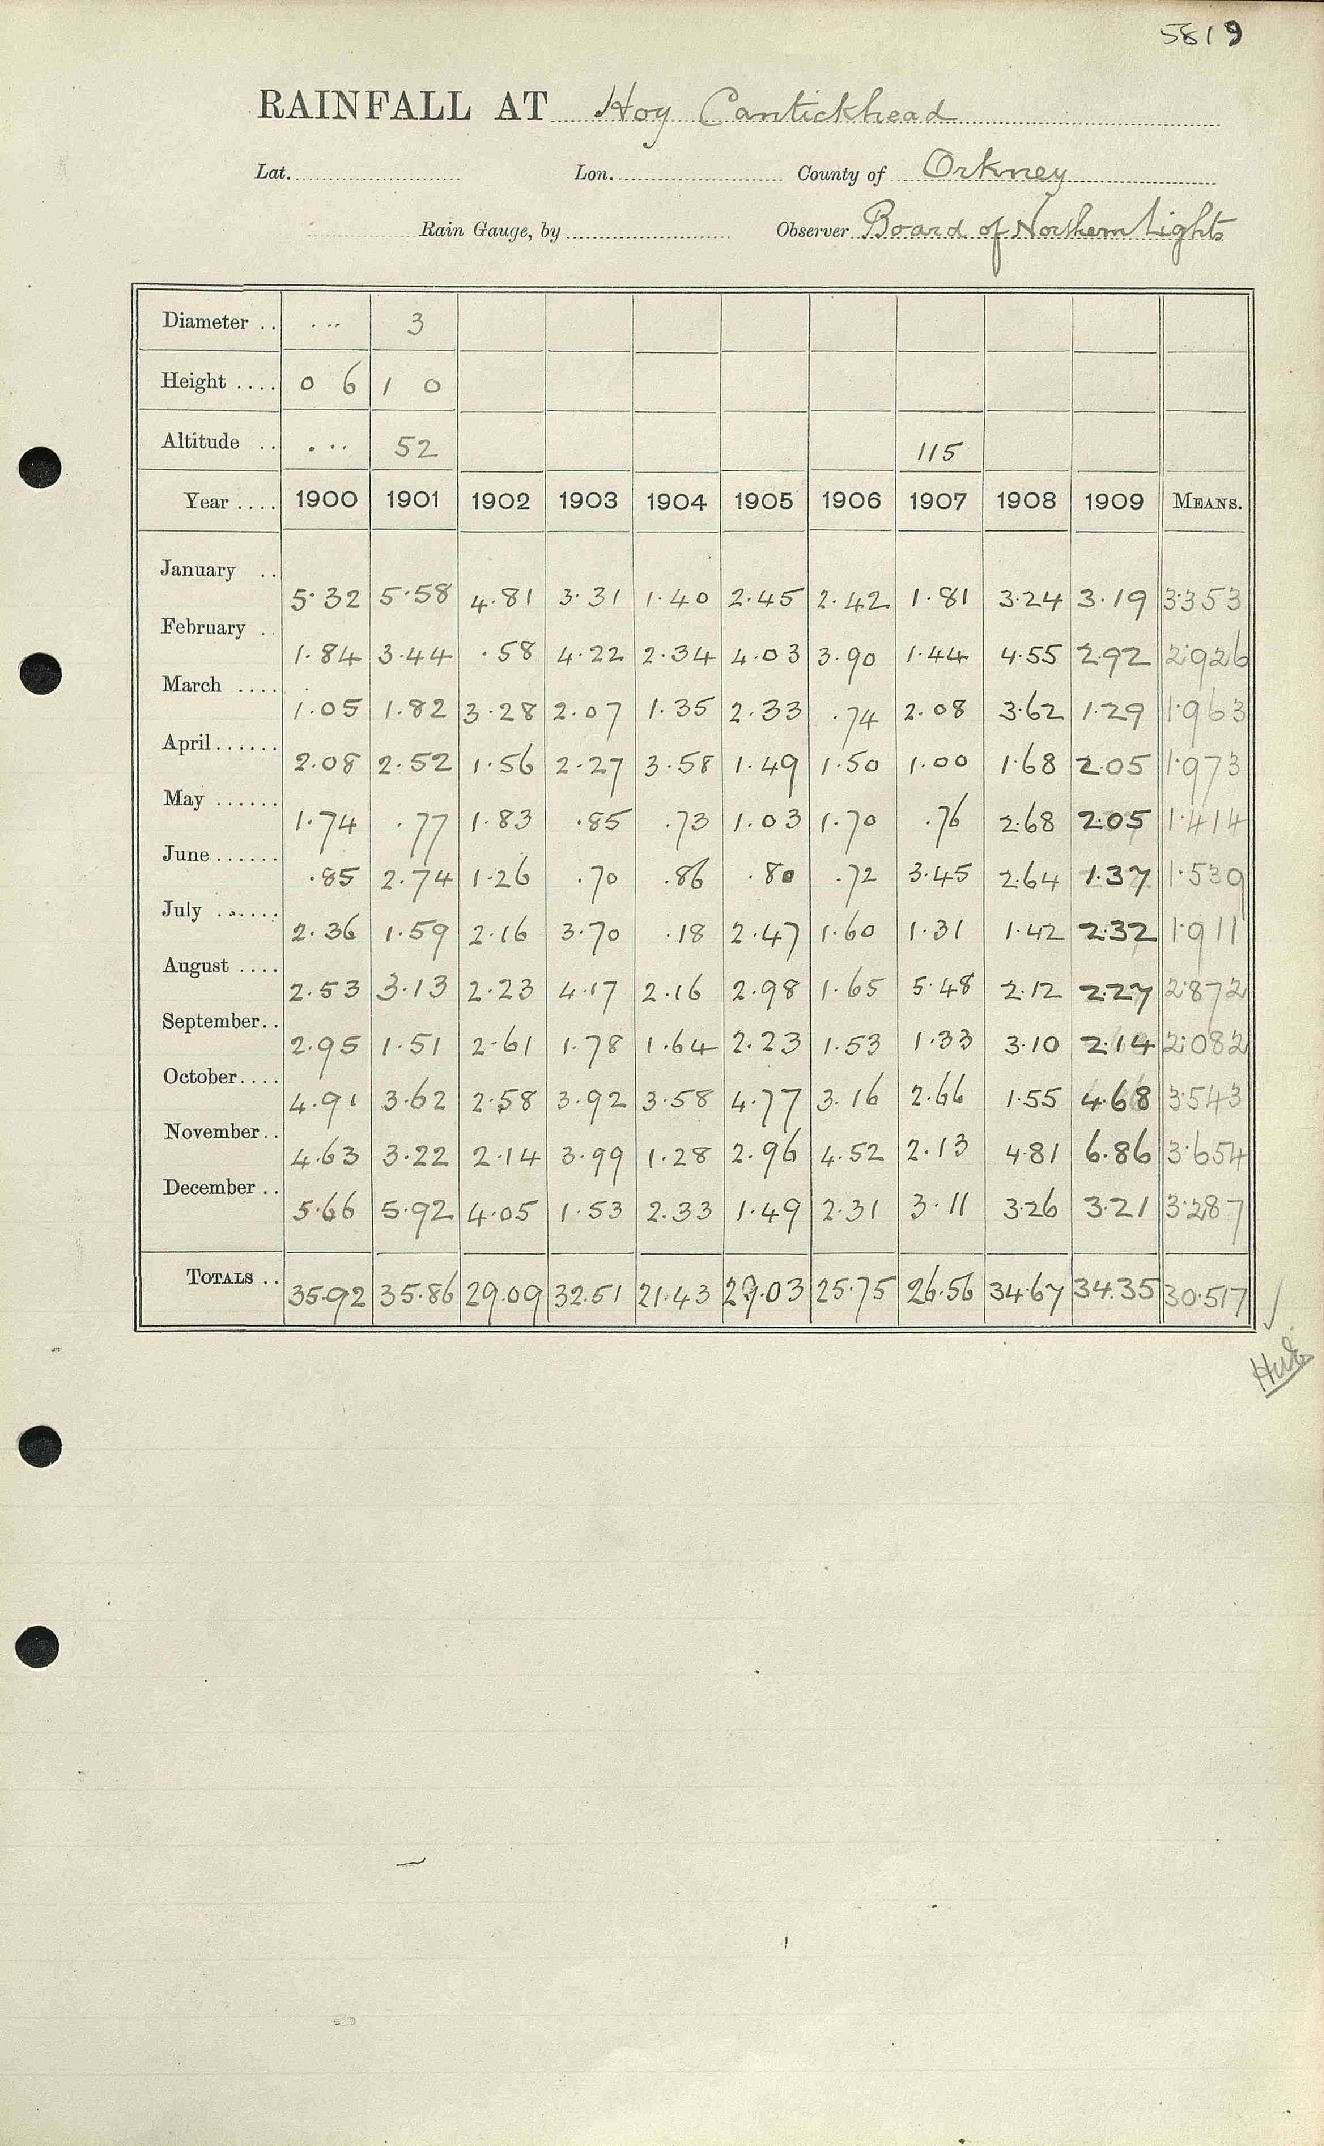 5819
RAINFALL AT Hoy Cantickhead
Lat. Lon. County of Orkney
Rain Gauge, by Observer Board of Northern Lights
Diameter .. ... 3
Height .... 0 6 1 0
Altitude .. ... 52 115
Year .... 1900 1901 1902 1903 1904 1905 1906 1907 1908 1909 MEANS.
January .. 5.32 5.58 4.81 3.31 1.40 2.45 2.42 1.81 3.24 3.19 3.353
February .. 1.84 3.44 .58 4.22 2.34 4.03 3.90 1.44 4.55 2.92 2.926
March .... 1.05 1.82 3.28 2.07 1.35 2.33 .74 2.08 3.62 1.29 1.963
April...... 2.08 2.52 1.56 2.27 3.58 1.49 1.50 1.00 1.68 2.05 1.973
May ...... 1.74 .77 1.83 .85 .73 1.03 1.70 .76 2.68 2.05 1.414
June...... .85 2.74 1.26 .70 .86 .80 .72 3.45 2.64 1.37 1.539
July ...... 2.36 1.59 2.16 3.70 .18 2.47 1.60 1.31 1.42 2.32 1.911
August .... 2.53 3.13 2.23 4.17 2.16 2.98 1.65 5.48 2.12 2.27 2.872
September.. 2.95 1.51 2.61 1.78 1.64 2.23 1.53 1.33 3.10 2.14 2.082
October.... 4.91 3.62 2.58 3.92 3.58 4.77 3.16 2.66 1.55 4.68 3.543
November.. 4.63 3.22 2.14 3.99 1.28 2.96 4.52 2.13 4.81 6.86 3.654
December .. 5.66 5.92 4.05 1.53 2.33 1.49 2.31 3.11 3.26 3.21 3.287
TOTALS .. 35.92 35.86 29.09 32.51 21.43 29.03 25.75 26.56 34.67 34.35 30.517